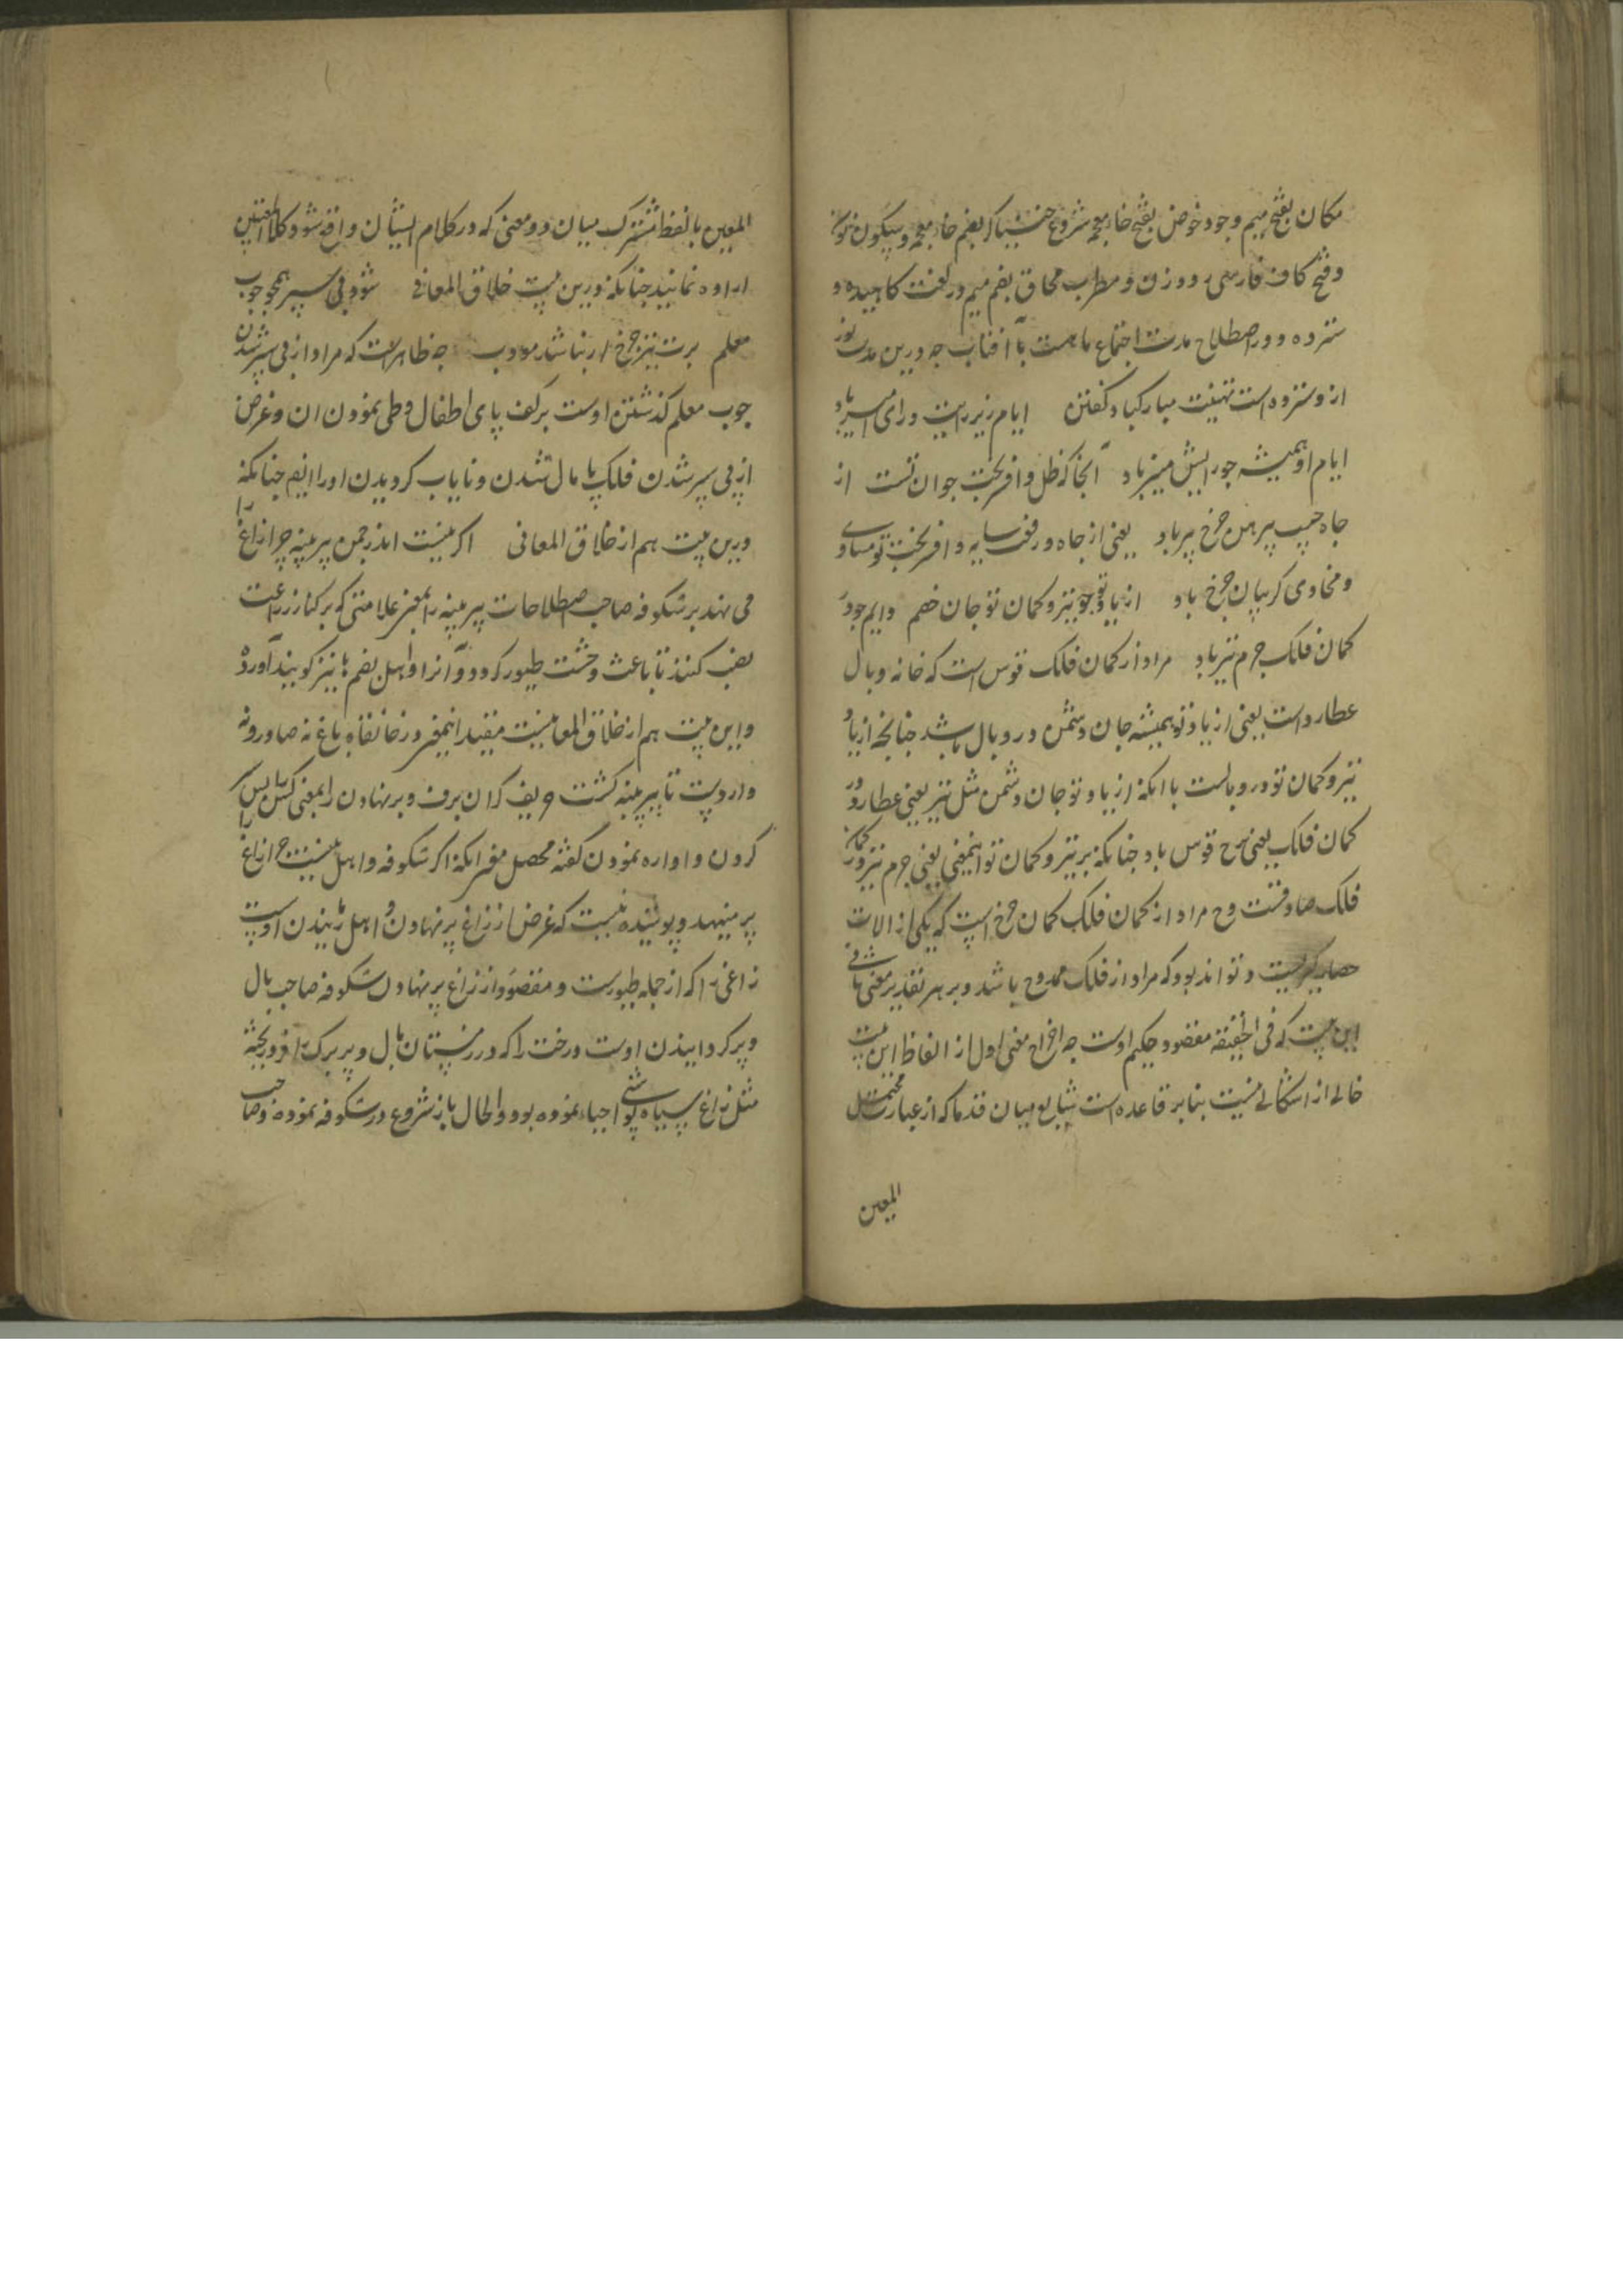 مکان بفتح میم وجود خوض بفتح خاء معجمه شروع خنیاگر بضم خاء معجمه وسکون نون
وفتح کاف فارسی رود زن و مطرب محاق بضم میم در لغت کاهیده و
سترده و در اصطلاح مدت اجتماع ماهست با آفتاب چه درین مدت نور
از و سترده است تهنیت مبارکباد گفتن ایام زیر رایت و رای امیر باد
ایام او همیشه چو رایش منیر باد آنجا که ظل وافر بخت جوان تست از
جاه جیب پیرهن چرخ پیر باد یعنی از جاه و رفعت سایه وافر بخت تو مساوی
و محاوی گریبان چرخ باد از باد تو چو تیر و کمان تو جان خصم دایم چو در
کمان فلک جرم تیر باد مراد از کمان فلک قوس است که خانه وبال
عطارد است یعنی از یاد تو همیشه جان دشمن در وبال باشد چنانچه از یاد
تیر و کمان تو در وبالست یا آنکه از یاد تو جان دشمن مثل تیر یعنی عطارد در
کمان فلک یعنی برج قوس باد چنانکه بر تیر و کمان تو اینمعنی یعنی جرم تیر در کمان
فلک صادقست و ح مراد از کمان فلک کمان چرخ است که یکی از آلات
حصارگیریست و تواند بود که مراد از فلک ممدوح باشد و بر هر تقدیر معنی ثانی
این بیت که فی الحقیقه مقصود حکیم اوست چه اخراج معنی اول از الفاظ این بیت
خالی از اشکالی نیست بنابر قاعده است شایع میان قدما که از عبارت محتمل
المعین
المعین یا لفظ مشترک میان دو معنی که در کلام ایشان واقع شود کلا المعنیین
اراده نمایند چنانکه درین بیت خلاق المعانی شود پی سپر همچو چوب
معلم برت نیز چرخ ار نباشد مودب چه ظاهر است که مراد از پی سپر شدن
چوب معلم گذشتن اوست بر کف پای اطفال و طی نمودن آن و غرض
از پی سپر شدن فلک پامال شدن و نایاب گردیدن اورا ایضا چنانکه
درین بیت هم از خلاق المعانی اگر نیست اندر چمن پیرمینه چرا زاغ را
می نهد بر شکوفه صاحب اصطلاحات پیرمینه را بمعنی علامتی که بر کنار زراعت
نصب کنند تا باعث وحشت طیور گردد و آنرا داهل بضم ها نیز گویند آورده
و این بیت هم از خلاق المعانیست مفید اینمعنی در خانقاه باغ نه صادر و نه
واردست تا پیرمینه گشت حریف گران برف و بر نهادن را بمعنی کش پس
کردن و آواره نمودن گفته محصل معنی آنکه اگر شکوفه داهل نیست چرا زاغ را
بر مینهد و پوشیده نیست که غرض از زاغ بر نهادن داهل رمیدن اوست
زاغی را که از جمله طیورست و مقصود از زاغ بر نهادن شکوفه صاحب بال
و پر گردانیدن اوست درخت را که در زمستان بال و پر برگ را فرو ریخته
مثل زاغ سیاه پوشی احیاء نموده بود و الحال باز شروع در شکوفه نموده و صاحب